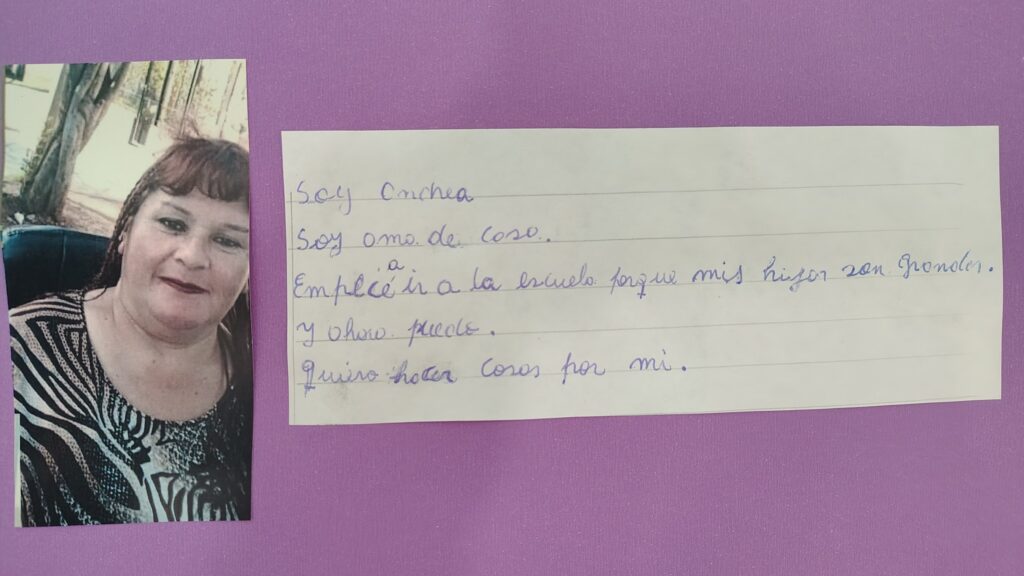 Soy Onchea
Soy ama de casa.
Empecé a ir a la escuela porque mis hijos son grandes.
Y ahora puedo.
Quiero hacer cosas por mi.